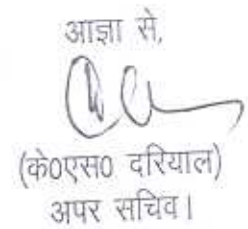 आज्ञा से,
(के0एस0 दरियाल)
अपर सचिव।